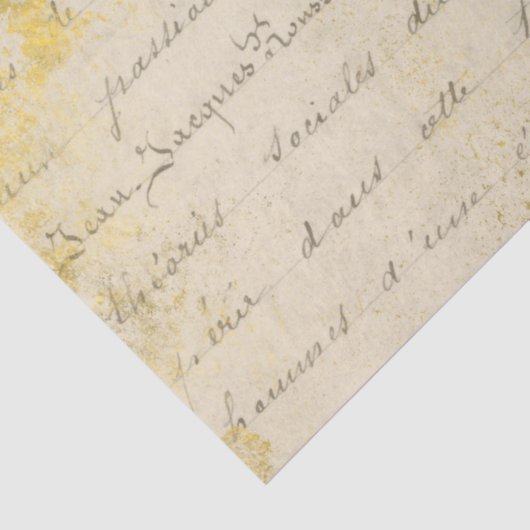 passion
Jean-Jacques Rouss
théories sociales du
périr dans cette
hommes d'une